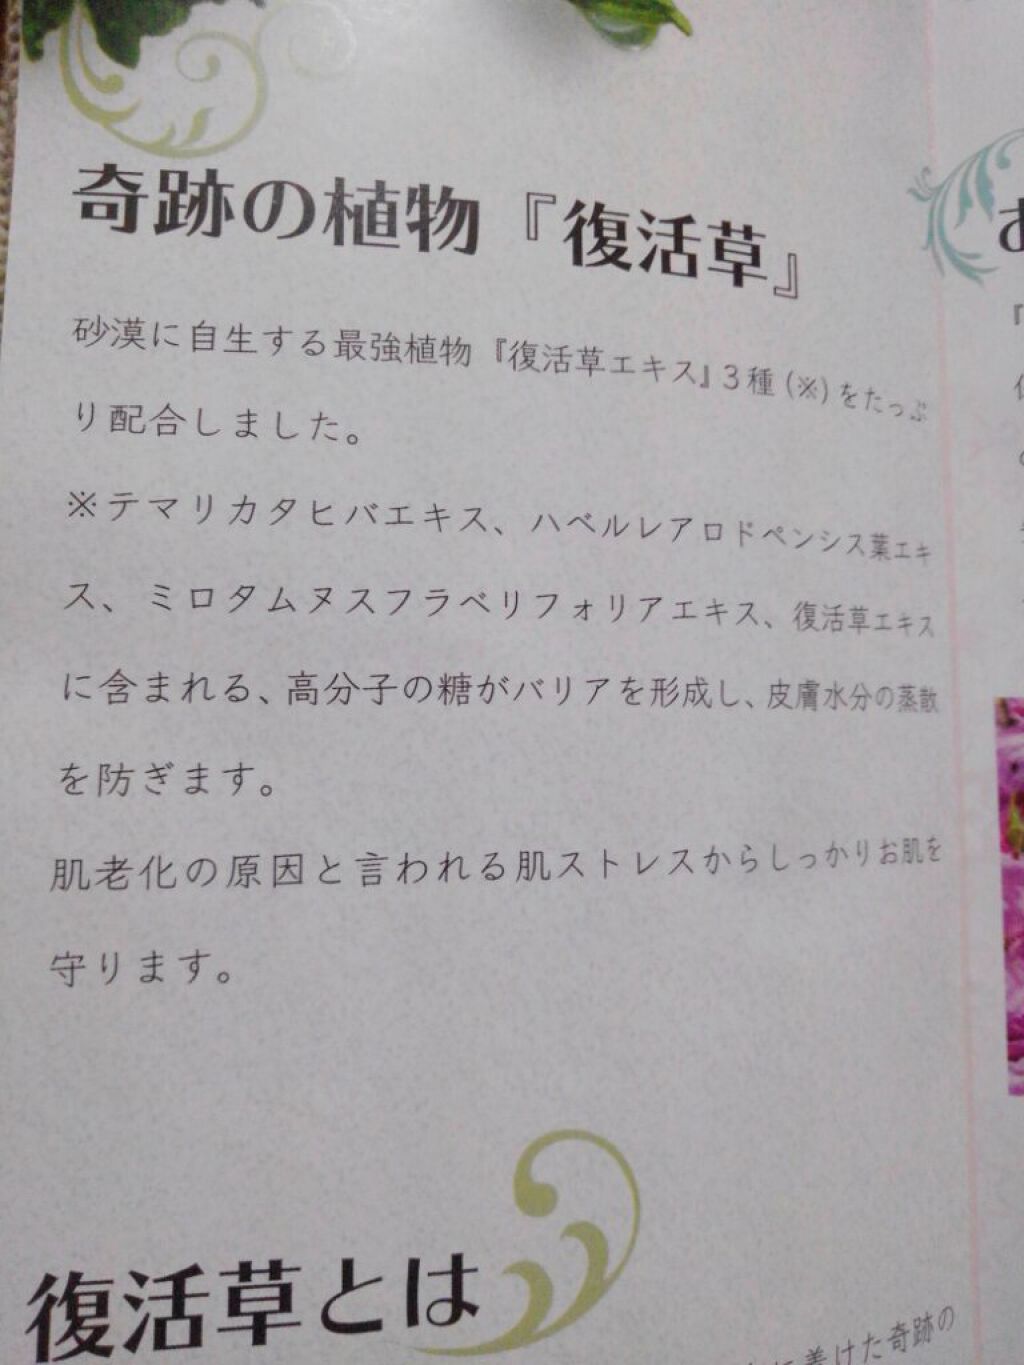 奇跡の植物『復活草』
砂漠に自生する最強植物『復活草エキス』3種(※)をたっぷ
り配合しました。
※テマリカタヒバエキス、ハベルレアロドペンシス葉エキ
ス、ミロタムヌスフラベリフォリアエキス、復活草エキス
に含まれる、高分子の糖がバリアを形成し、皮膚水分の蒸散
を防ぎます。
肌老化の原因と言われる肌ストレスからしっかりお肌を
守ります。
復活草とは
に着けた奇跡の